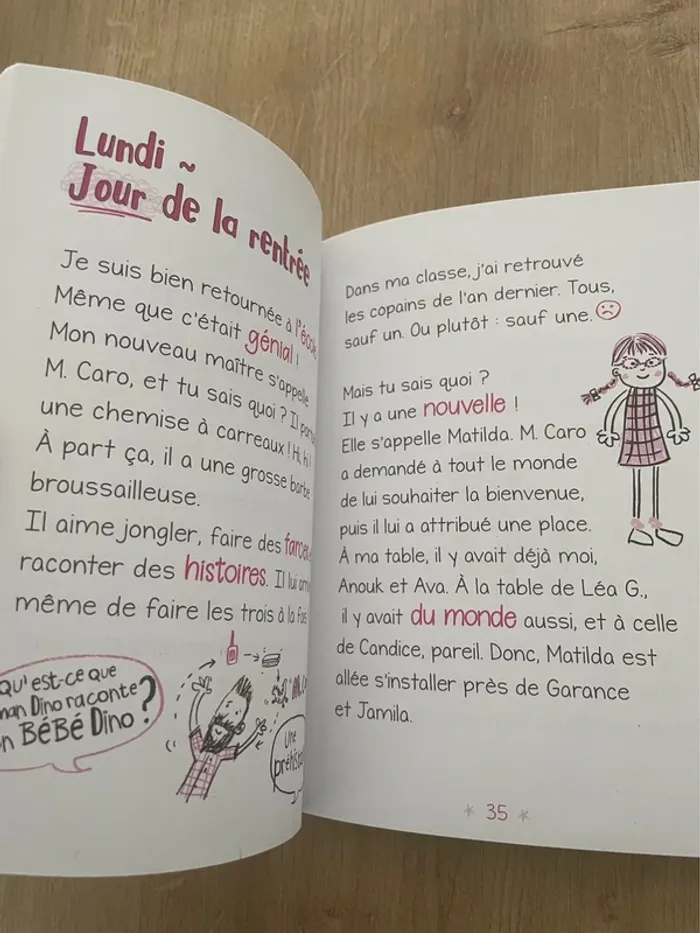 Lundi ~
Jour de la rentrée
Je suis bien retournée à l'école
Même que c'était génial !
Mon nouveau maître s'appelle
M. Caro, et tu sais quoi ? Il
une chemise à carreaux ! Hi, hi !
À part ça, il a une grosse barbe
broussailleuse.
Il aime jongler, faire des farces
raconter des histoires. Il lui
même de faire les trois à la fois
Qu'est-ce que
Dino raconte
BéBé Dino ?
Une
Dans ma classe, j'ai retrouvé
les copains de l'an dernier. Tous,
sauf un. Ou plutôt : sauf une.
Mais tu sais quoi ?
Il y a une nouvelle !
Elle s'appelle Matilda. M. Caro
a demandé à tout le monde
de lui souhaiter la bienvenue,
puis il lui a attribué une place.
À ma table, il y avait déjà moi,
Anouk et Ava. À la table de Léa G.,
il y avait du monde aussi, et à celle
de Candice, pareil. Donc, Matilda est
allée s'installer près de Garance
et Jamila.
35